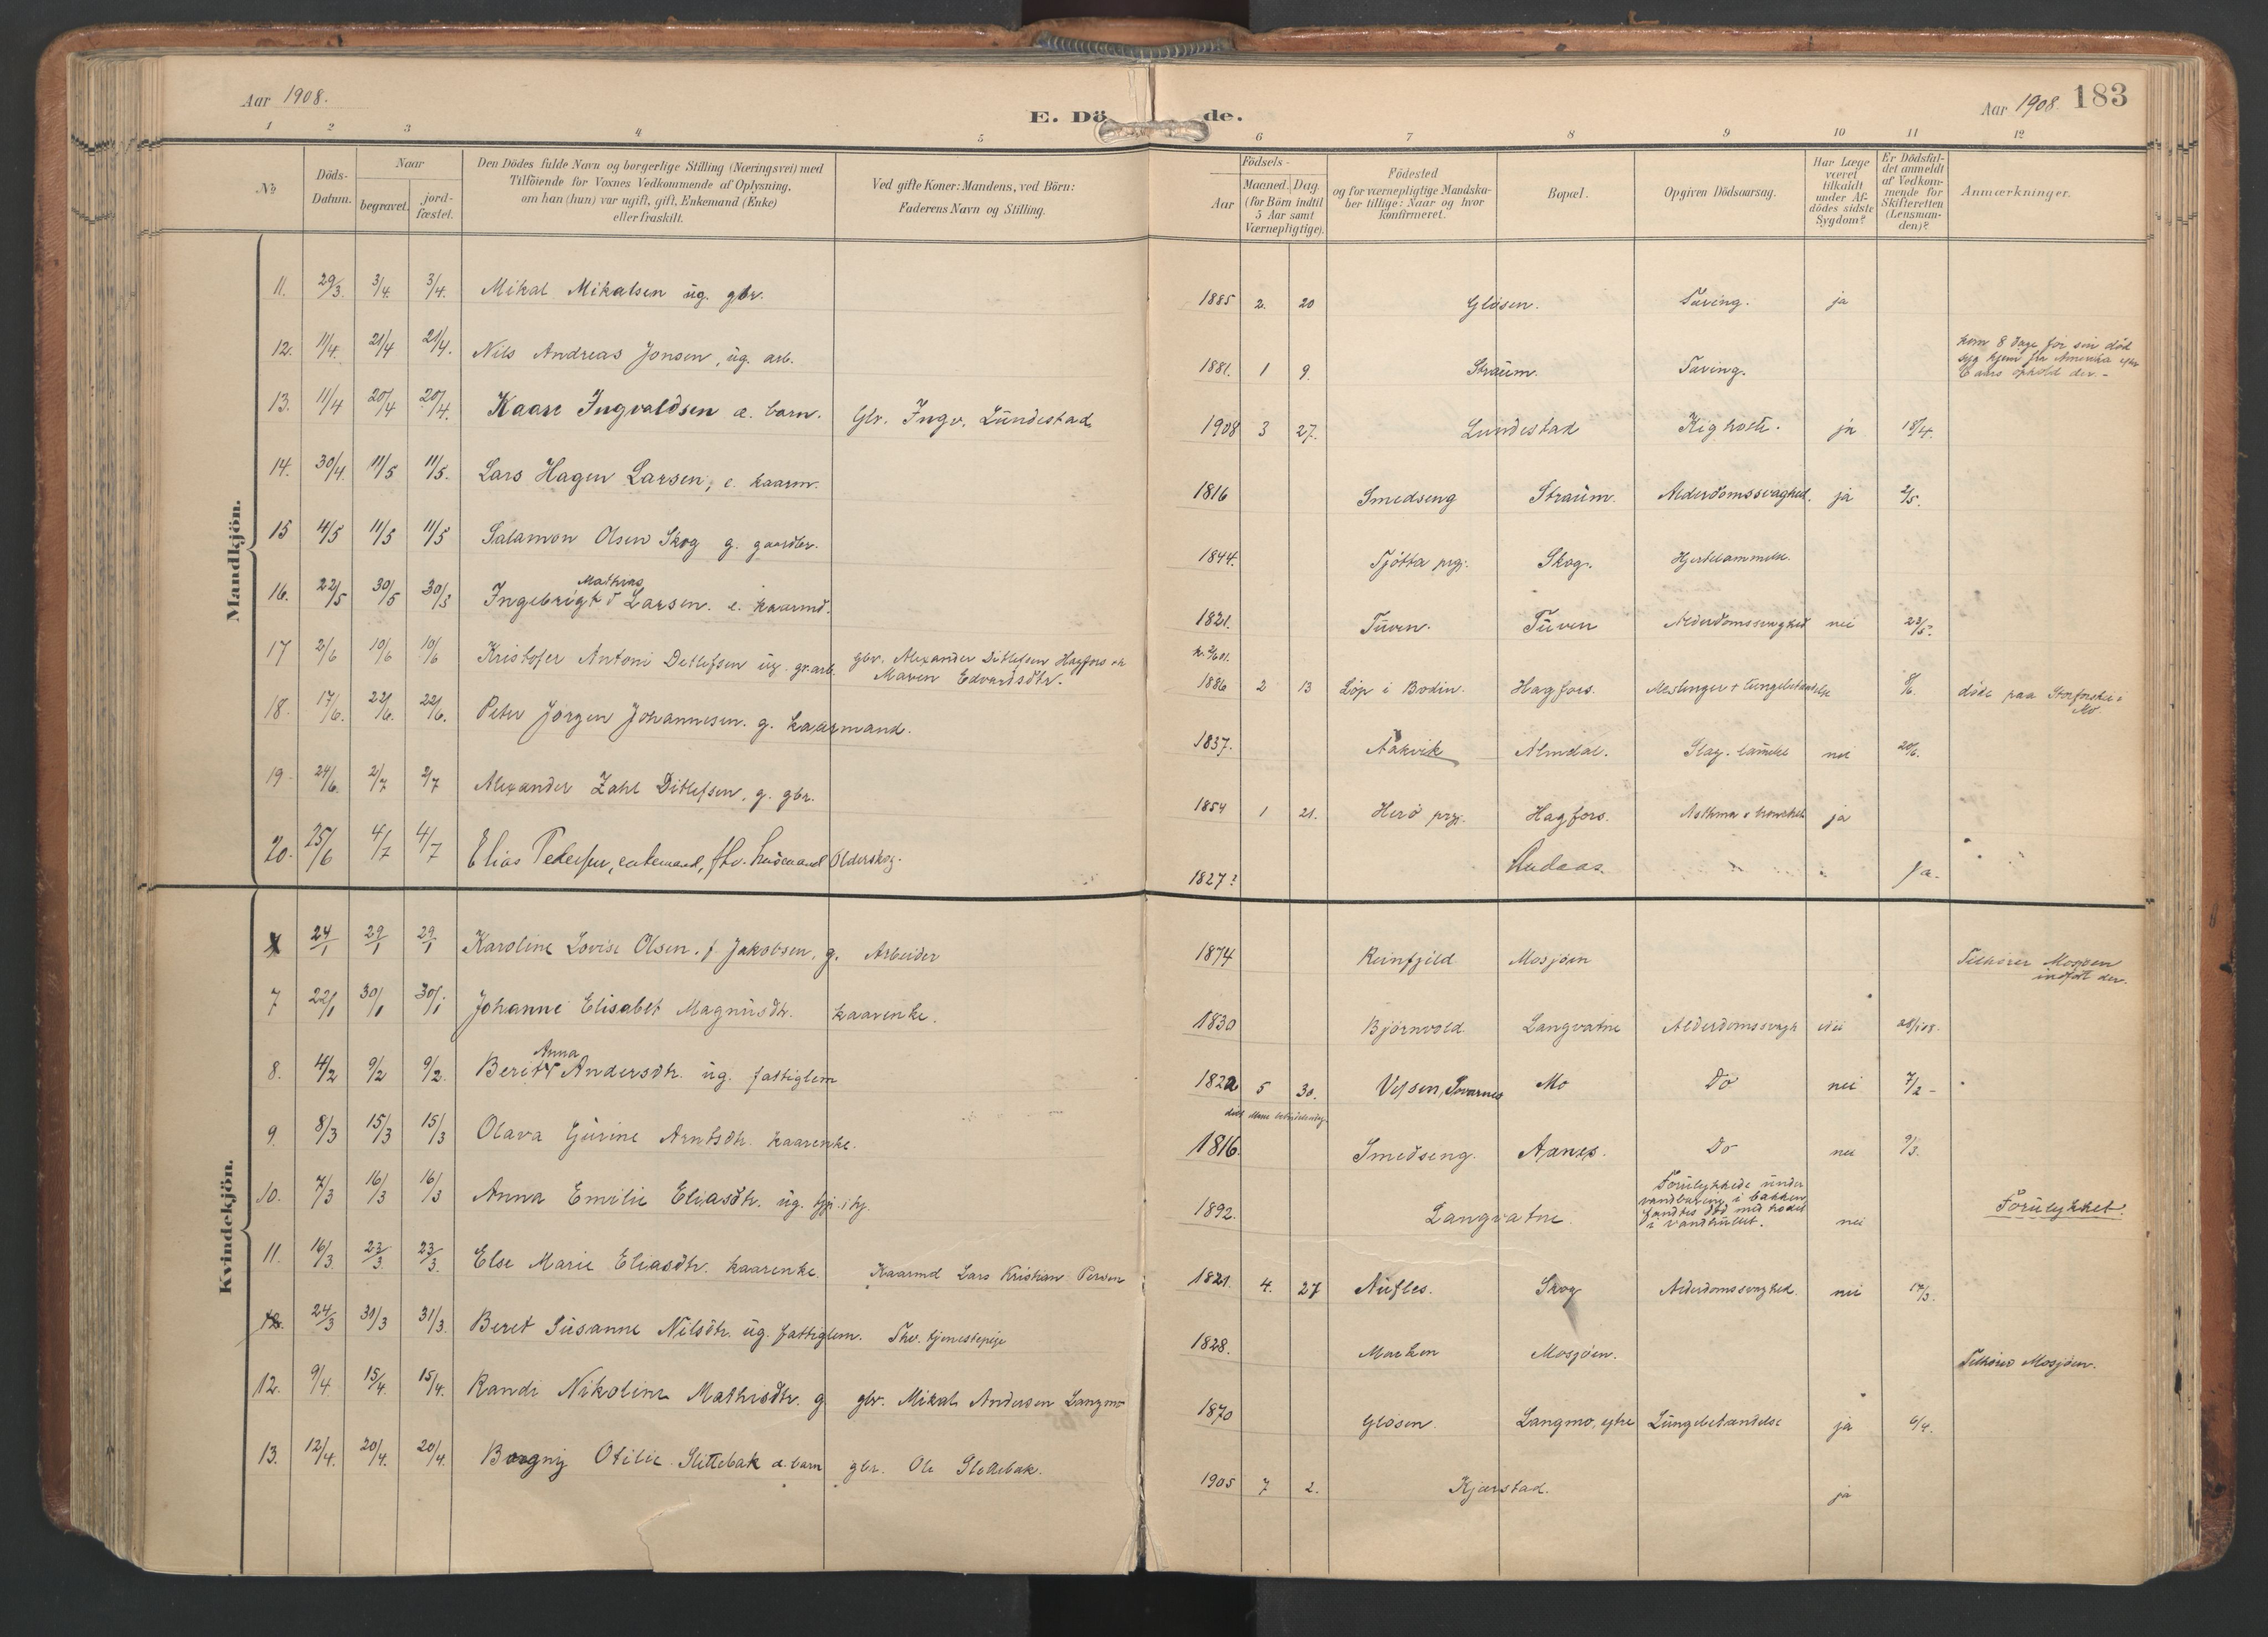 Aar 1908.
E. Dö de.
Aar 1908. 183
1 2 3 4 5 6 7 8 9 10 11 12
No
Döds-Datum.
Naar
begravet.
jord-fæstet.
Den Dödes fulde Navn og borgerlige Stilling (Næringsvei) med
Tilföiende for Voxnes Vedkommende af Oplysning,
om han (hun) var ugift, gift, Enkemand (Enke)
eller fraskilt.
Ved gifte Koner: Mandens, ved Börn:
Faderens Navn og Stilling.
Födsels-
Aar
Maaned. Dag.
(for Börn indtil
5 Aar samt
Værnepligtige).
Födested
og for værnepligtige Mandska-
ber tillige: Naar og hvor
konfirmeret.
Bopæl.
Opgiven Dödsaarsag.
Har Læge
været
tilkaldt
under Af-
dödes sidste
Sygdom?
Er Dödsfal-
det anmeldt
af Vedkom-
mende for
Skifteretten
(Lensman-
den)?
Anmærkninger.
Mandkjön.
11. 29/3. 3/4. 3/4. Mikal Mikalsen ug. gbr. 1885 2. 20 Glösen. Tæring. ja
12. 11/4. 21/4 21/4. Nils Andreas Jonsen, ug. arb. 1881. 1 9. Straum. Tæring. kom 8 dage før sin død
syg hjem fra Amerika efter
6 aars ophold der.-
13. 11/4 20/4 20/4. Kaare Ingvaldsen æ. barn. Gbr. Ingv. Lundestad 1908 3 27. Lundestad Kighoste. ja 18/4.
14. 30/4. 11/5 11/5. Lars Hagen Larsen, e. kaarm. 1816 Smedseng Straum. Alderdomssvaghed. ja 2/5.
15 4/5 11/5 11/5 Salamon Olsen Skog g. gaardbr. 1844. Tjötta prgj. Skog. Hjertelammelse.
Mathias
16. 22/5 30/5 30/5 Ingebrigt Larsen. e. kaarmd. 1821. Tuven. Tuven Alderdomssvaghed nei 23/5.
17 2/6 10/6 10/6 Kristofer Antoni Detlefsen ug. gr.arb. gbr. Alexander Ditlefsen Hagfors og
Maren Edvardsdtr.
1886 2 13 Löp i Bodin. Hagfors. Meslinger + lungebetændelse 8/6. døde paa Storforshei i
Mo.
18. 17/6. 22/6. 22/6. Peter Jörgen Johannesen. g. kaarmand. 1837. Aakvik Almdal. Slag. lammelse nei 20/6.
19. 24/6. 2/7 2/7 Alexander Zahl Ditlefsen, g. gbr. 1854 1 21. Herö prgj. Hagfors. Asthma + bronchit ja
20. 25/6 4/7 4/7 Elias Pedersen, enkemand, fhv. husmand Olderskog. 1827? Ludaas. Ja.
Kvindekjön.
24/1 29/1 29/1 Karoline Lovise Olsen. f. Jakobsen, g. Arbeider 1874 Reinfjeld Mosjöen Tilhörer Mosjöen
indfört der.
7 22/1 30/1 30/1 Johanne Elisabet Magnusdtr. kaarenke. 1830 Björnvold. Langvatne Alderdomssvagh nei 28/1 08.
Anna
8. 4/2 9/2 9/2. Berit Andersdtr. ug. fattiglem 1822 5 30. Vefsen, Sovarnes Mo Do nei 7/2 -
9. 8/3 15/3 15/3 Olava Gurine Arntsdtr. kaarenke. 1816. Smedseng. Aanes. Do nei 9/3.
10. 7/3 16/3 16/3 Anna Emilie Eliasdtr. ug. tj. i hj. 1892. Langvatne. Forulykkede under
vandbæring i bakken
fandtes død med hodet
i vandhullet. nei Forulykket.
11. 16/3 23/3. 23/3. Else Marie Eliasdtr. kaarenke. Kaarmd Lars Kristian Person 1821. 4. 27 Nufles. Skog Alderdomssvaghed. nei 17/3.
24/3 31/3 31/3. Beret Susanne Nilsdtr. ug. fattiglem. Fhv. tjenestepige 1828. Marken Mosjöen. Tilhörer Mosjöen.
12. 9/4. 15/4. 15/4. Randi Nikoline Mathisdtr. g gbr. Mikal Andersen Langmo 1870 Glösen. Langmo, ytre Lungebetændelse ja 6/4.
13. 12/4. 20/4. 20/4. Borgny Otilie Slettebak æ. barn gbr. Ole Slettebak. 1905 7 2. Kjærstad. ja